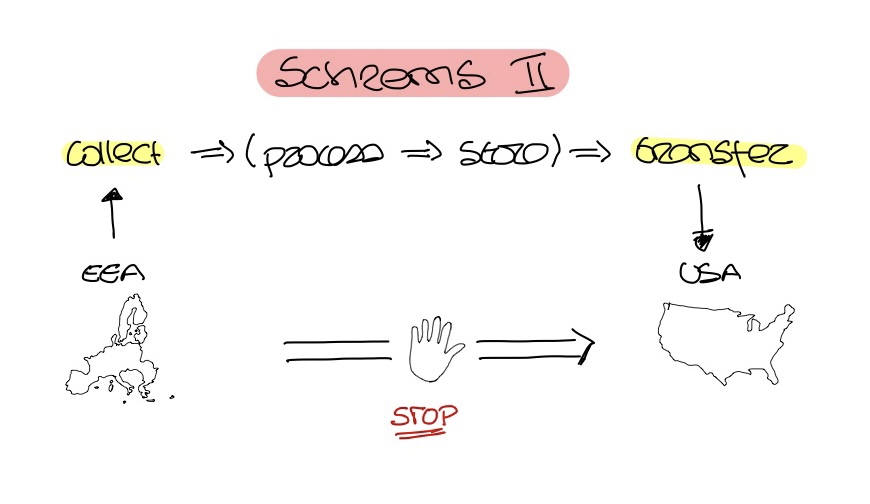 Schrems II
collect ⇒ (process ⇒ store) ⇒ transfer
EEA
USA
STOP